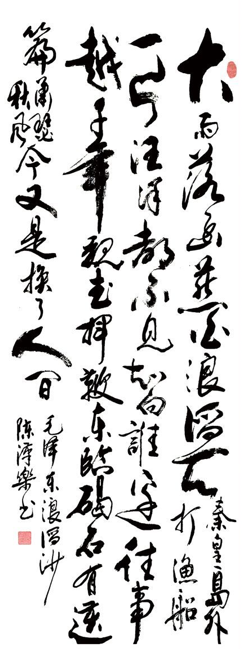 大雨落幽燕白浪滔天秦皇島外打漁船
一片汪洋都不見知向誰边往事
越千年魏武挥鞭东临碣石有遗
篇萧瑟秋风今又是换了人间
毛泽东浪淘沙
陈泽樂书